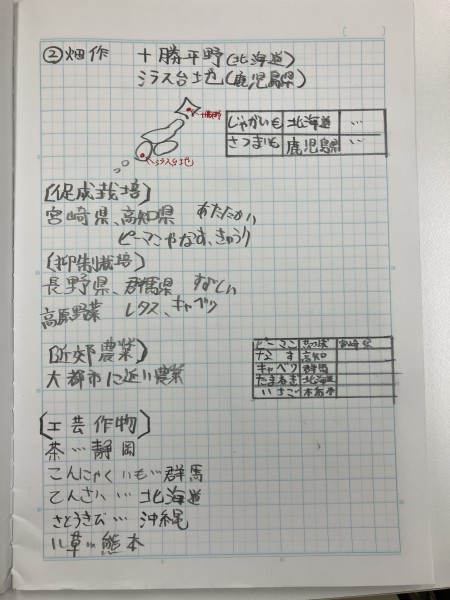 ②畑作　十勝平野(北海道)
シラス台地(鹿児島県)
十勝平野
シラス台地
じゃがいも 北海道 …
さつまいも 鹿児島県 …
[促成栽培]
宮崎県、高知県　あたたかい
ピーマンやなす、きゅうり
[抑制栽培]
長野県、群馬県　すずしい
高原野菜　レタス、キャベツ
[近郊農業]
大都市に近い農業
ピーマン 宮崎
なす 高知
キャベツ 群馬
たまねぎ 北海道
いちご 栃木
[工芸作物]
茶…静岡
こんにゃくいも…群馬
てんさい…北海道
さとうきび…沖縄
い草…熊本